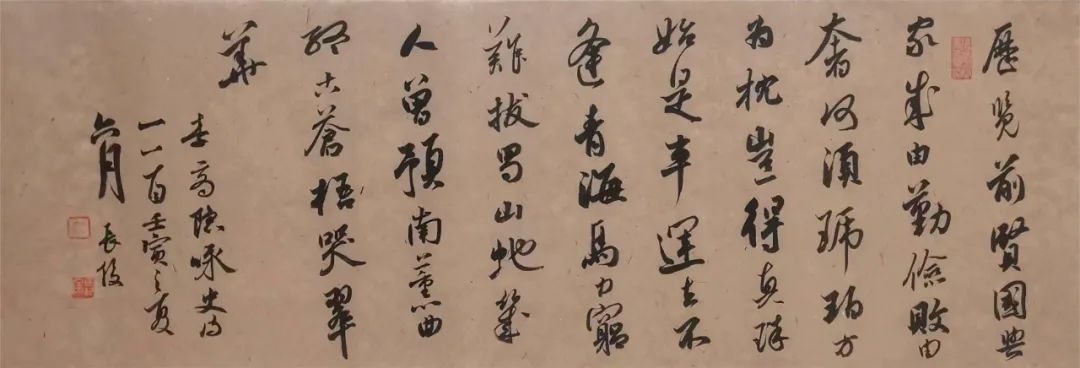 歷覽前賢國與
家成由勤儉敗由
奢何須琥珀方
為枕豈得真珠
始是車運去不
逢青海馬力窮
難拔蜀山虵幾
人曾預南薰曲
終古蒼梧哭翠
華
李商隱咏史詩
二首壬寅之夏
六月
長